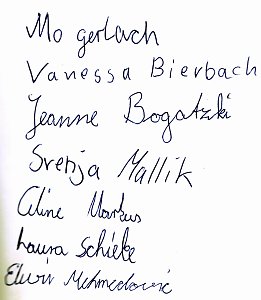 Mo gerlach
Vanessa Bierbach
Jeanne Bogatzki
Svenja Mallik
Celine Markus
Laura Schieke
Elvir Mehmedović